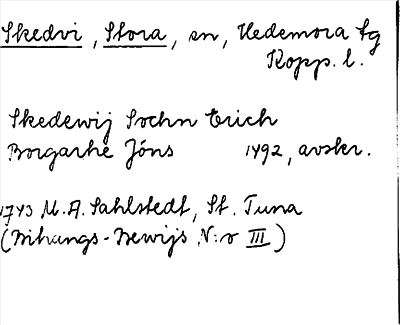 Skedvi, Stora, sn, Hedemora tg
Kopp. l.
Skedewij Sochn Erich
Borgarhe Jöns 1492, avskr.
1743 M. A. Sahlstedt, St. Tuna
(Bihangs-Bewijs N:o III)